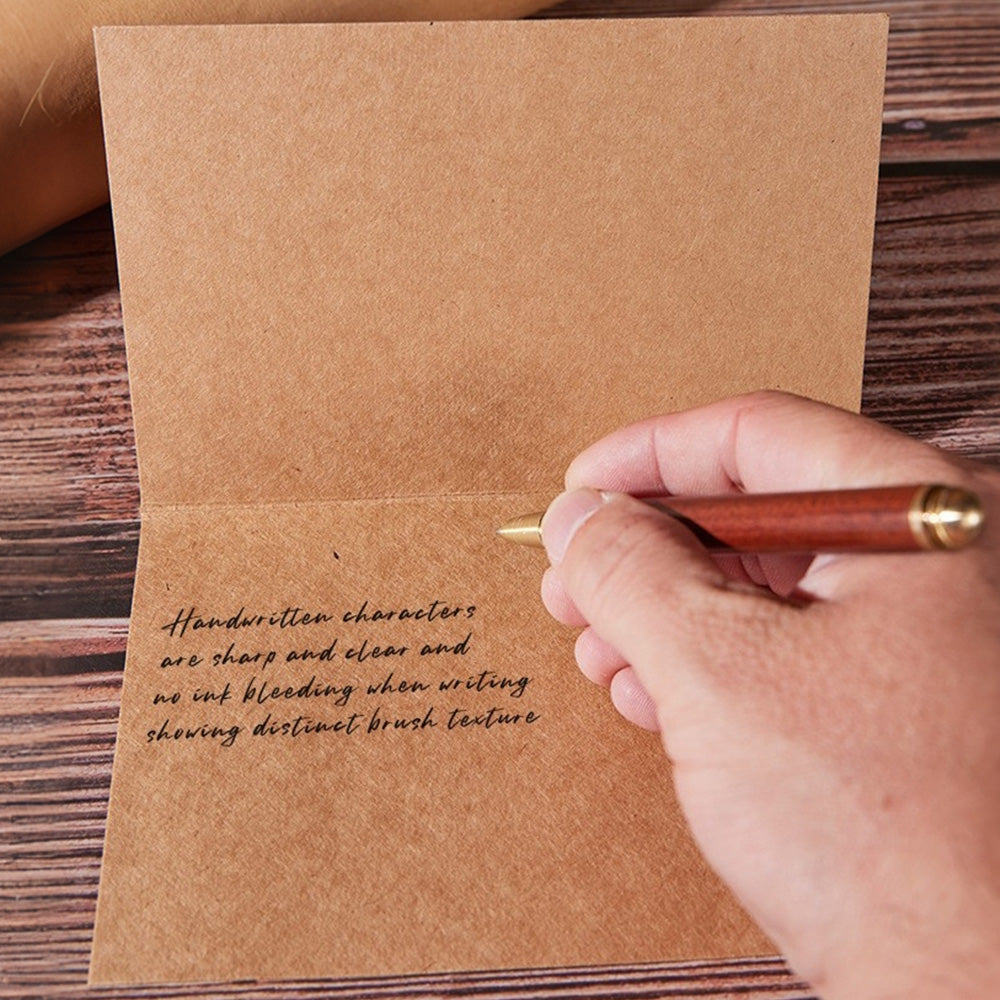 Handwritten characters
are sharp and clear and
no ink bleeding when writing
showing distinct brush texture